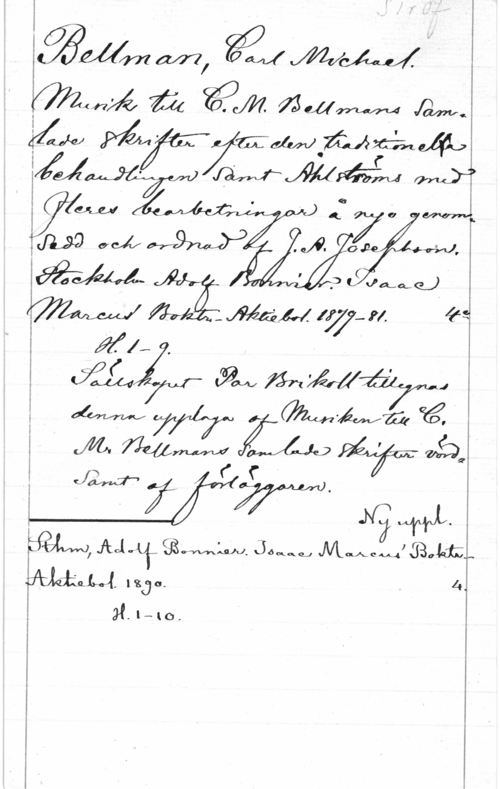 Bellman, Carl Michael.
Musik till C. M. Bellmans Sam-
lade Skrifter efter den traditionella
behandlingen samt Åhlströms med
fleres bearbetningar å nyo genom-
sedd och ordnad af J. A. Josephson.
Stockholm Adolf Bonnier. Isaac
Marcus' Boktr.-Aktiebol. 1879-81. 4º
H. 1-9.
Sällskapet Par Brikoll tillegnas
denna upplaga af Musiken till C.
M. Bellmans Samlade Skrifter vörd-
samt af förläggaren.
Ny uppl.
Sthm, Adolf Bonnier. Isaac Marcus' Boktr.-
Aktiebol. 1890. 4.
H. 1-10.